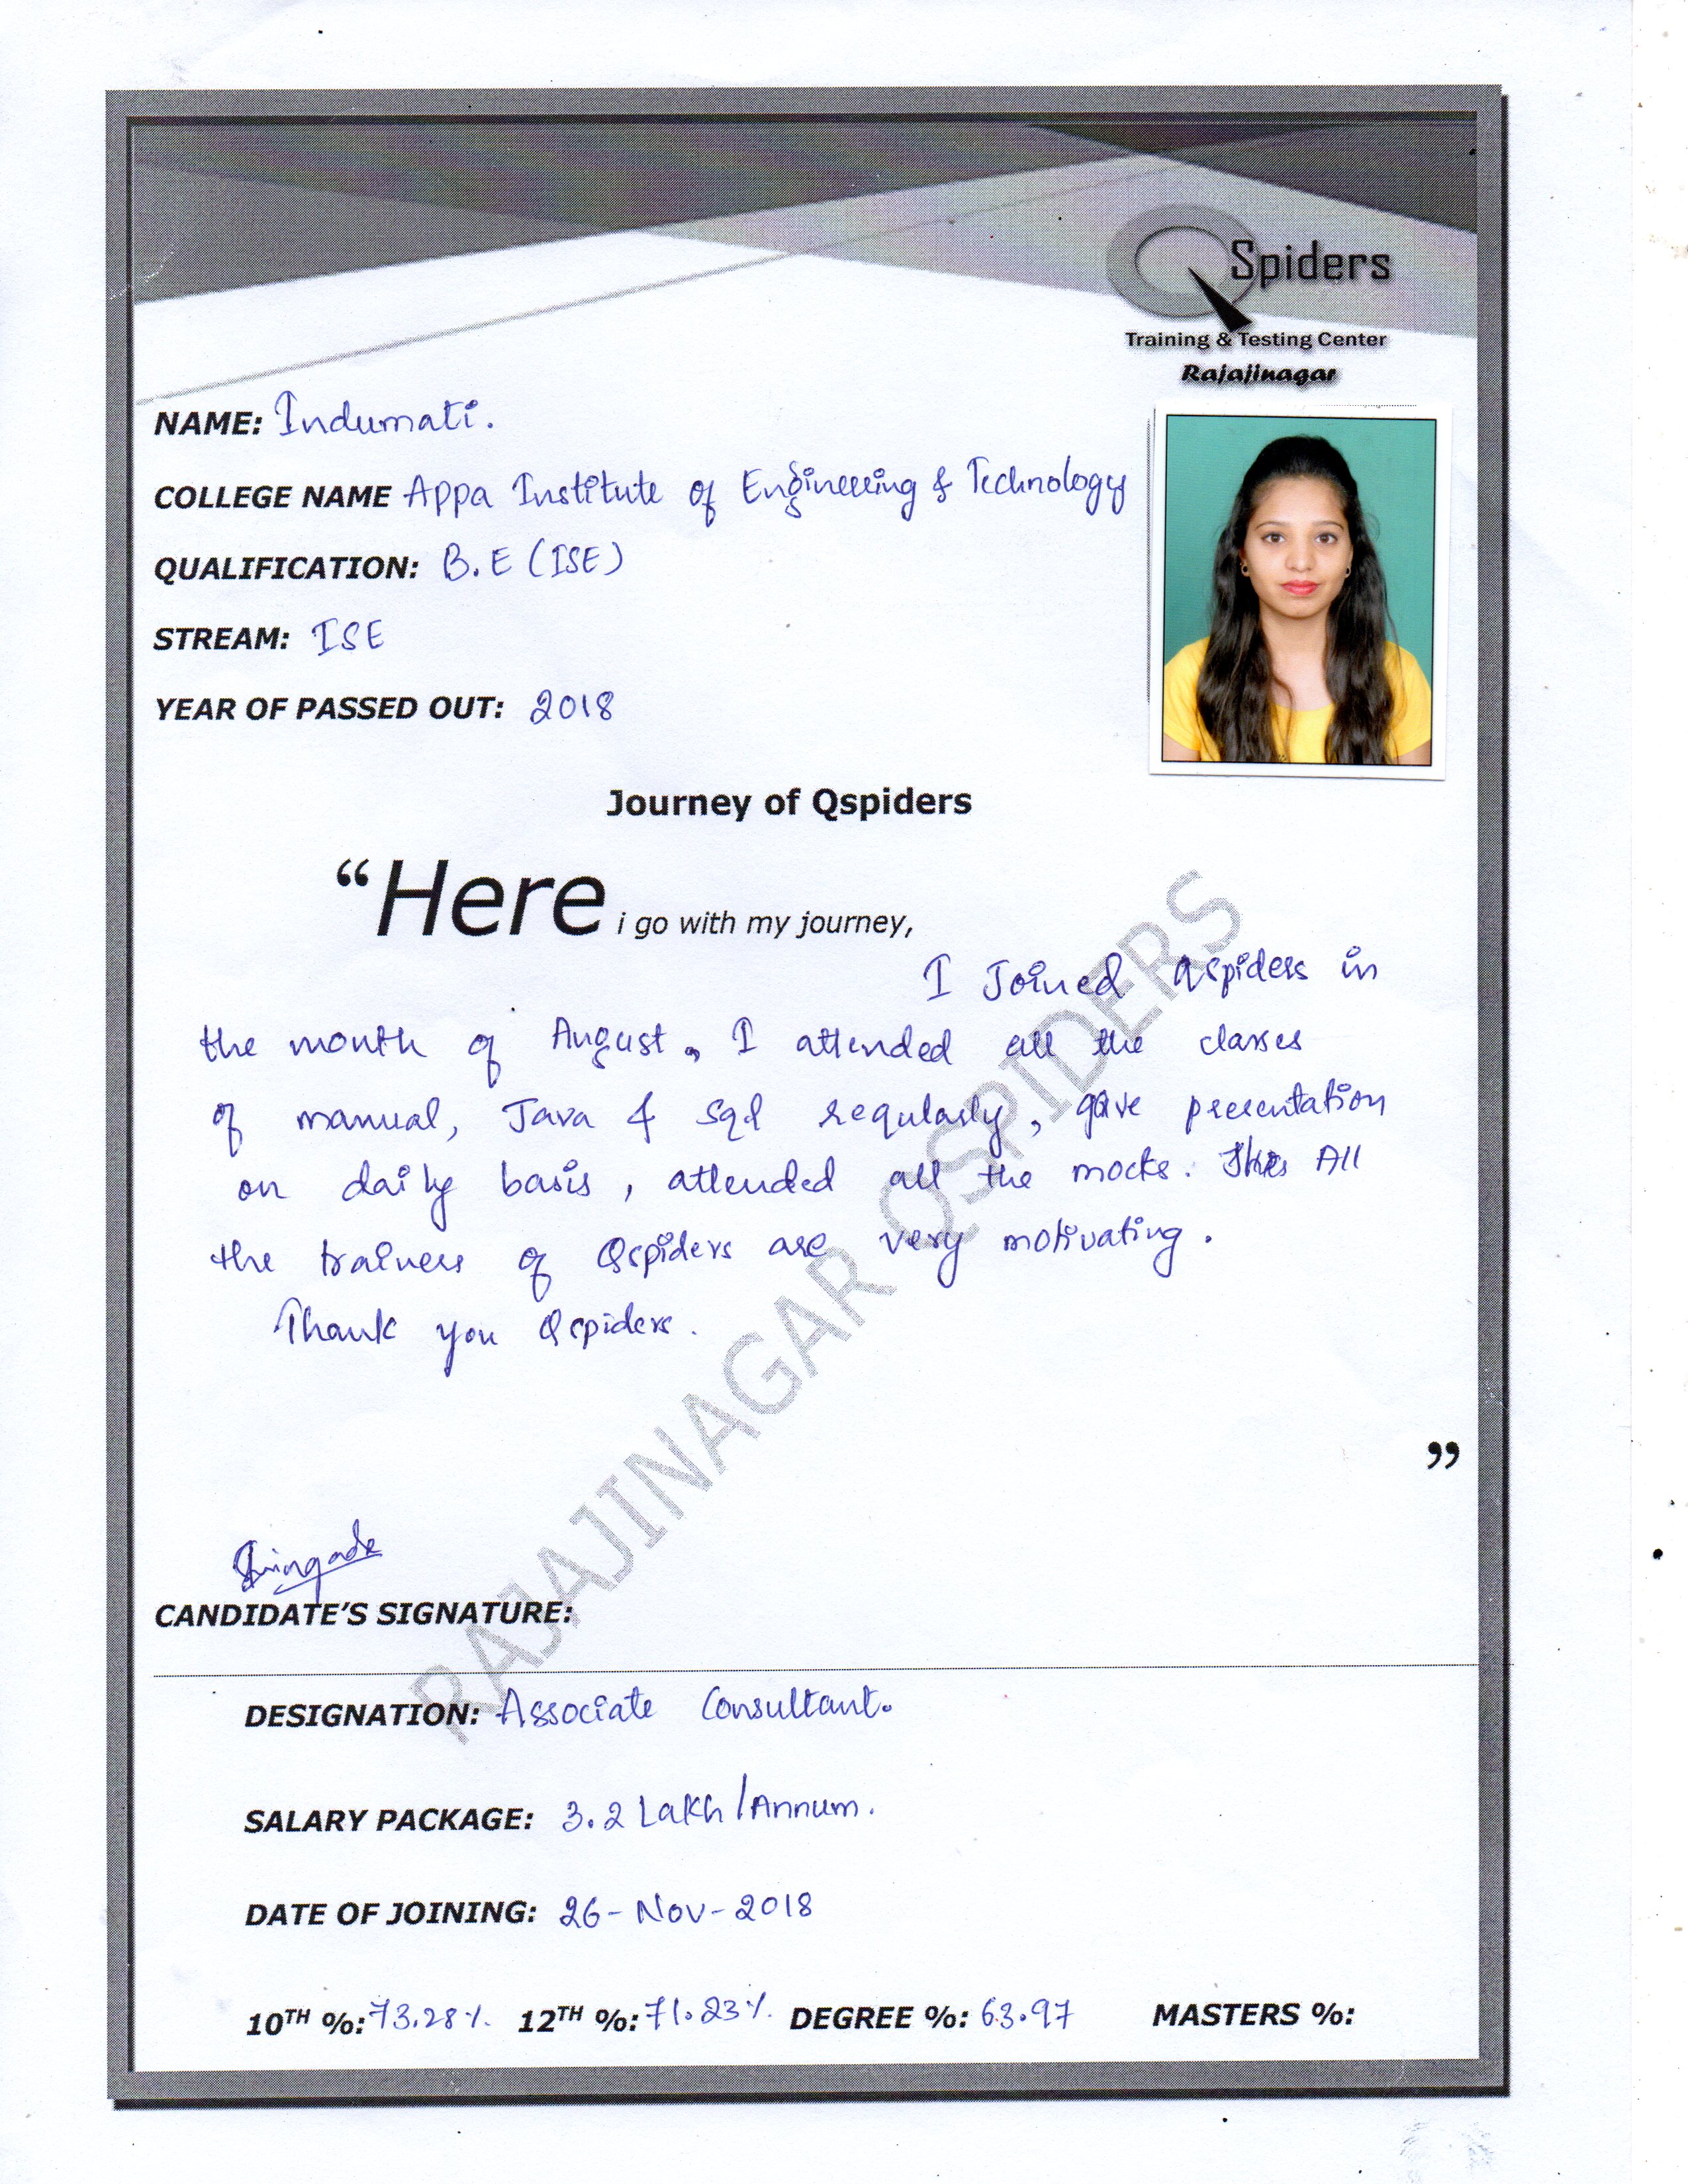 QSpiders
Training & Testing Center
Rajajinagar
NAME: Indumati.
COLLEGE NAME Appa Institute of Engineering & Technology
QUALIFICATION: B.E (ISE)
STREAM: ISE
YEAR OF PASSED OUT: 2018
Journey of Qspiders
“Here i go with my journey,
I Joined Qspiders in
the month of August, I attended all the classes
of manual, Java & sql regularly, gave presentation
on daily basis, attended all the mocks. All
the trainers of Qspiders are very motivating.
Thank you Qspiders.
”
CANDIDATE’S SIGNATURE:
RAJAJINAGAR QSPIDERS
DESIGNATION: Associate Consultant.
SALARY PACKAGE: 3.2 Lakh/Annum.
DATE OF JOINING: 26-Nov-2018
10TH %: 73.28% 12TH %: 71.23% DEGREE %: 63.97 MASTERS %: